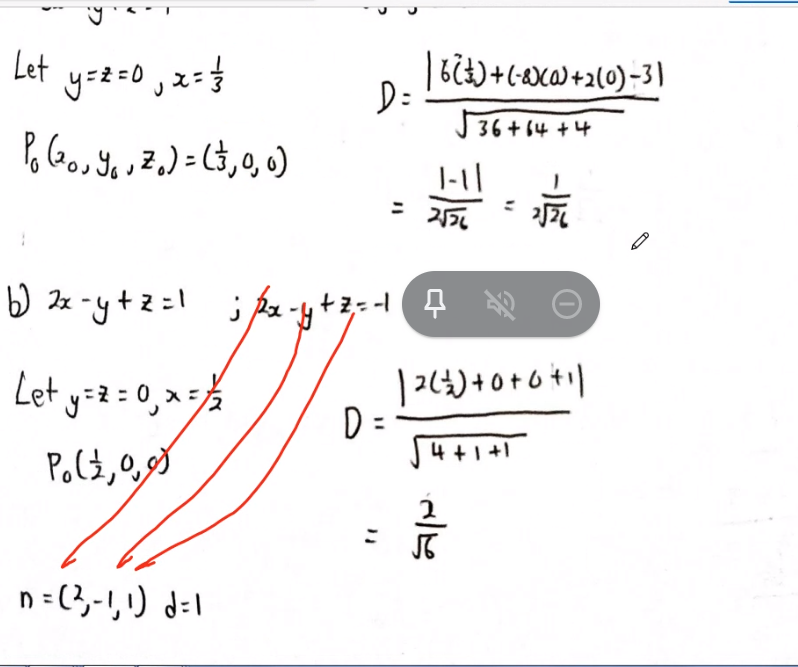 Let y=z=0, x=1/3
P₀(x₀, y₀, z₀)=(1/3, 0, 0)
D= |6(1/3)+(-8)(0)+2(0)-3| / √36+64+4
= |-1| / 2√26 = 1 / 2√26
b) 2x-y+z=1 ; 2x-y+z=-1
Let y=z=0, x=1/2
P₀(1/2, 0, 0)
D= |2(1/2)+0+0+1| / √4+1+1
= 2/√6
n=(2,-1,1) d=1